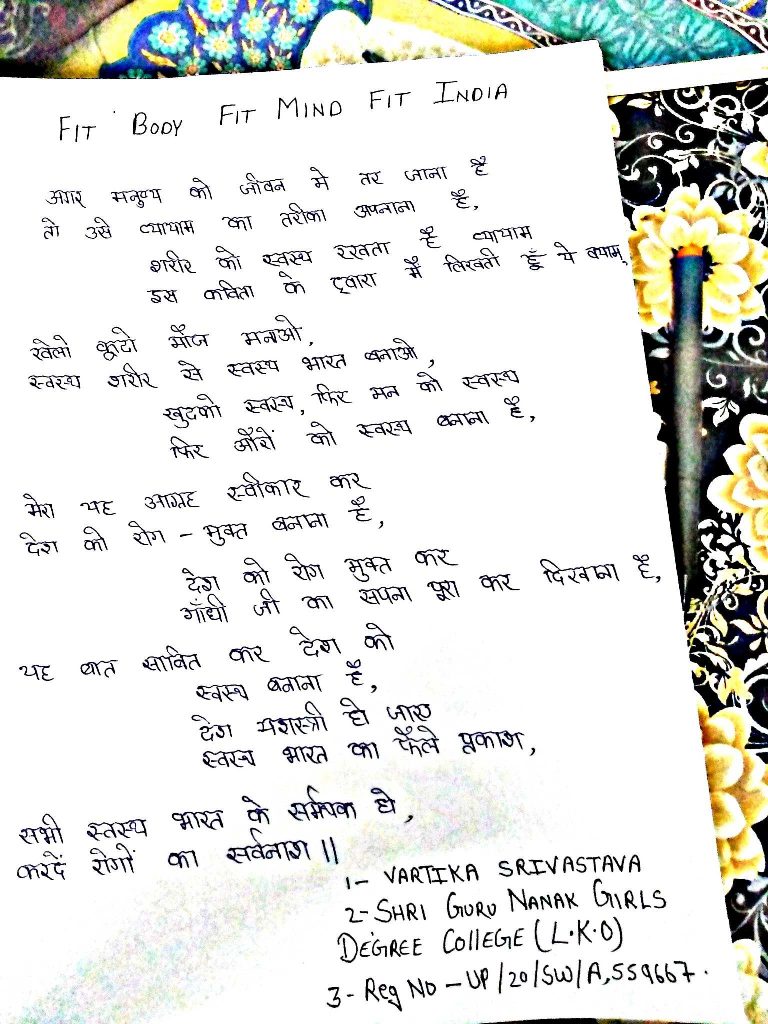 FIT BODY FIT MIND FIT INDIA
अगर मनुष्य को जीवन मे तर जाना है
तो उसे व्यायाम का तरीका अपनाना है,
शरीर को स्वस्थ रखता है व्यायाम
इस कविता के द्वारा मैं लिखती हूँ ये बयाम,
खेलो कूदो मौज मनाओ,
स्वस्थ शरीर से स्वस्थ भारत बनाओ,
खुदको स्वस्थ, फिर मन को स्वस्थ
फिर औरों को स्वस्थ बनाना है,
मेरा यह आग्रह स्वीकार कर
देश को रोग - मुक्त बनाना है,
देश को रोग मुक्त कर
गाँधी जी का सपना पूरा कर दिखाना है,
यह बात साबित कर देश को
स्वस्थ बनाना है,
देश यशस्त्री हो जाए
स्वस्थ भारत का फैले प्रकाश,
सभी स्वस्थ भारत के सर्मपक हो,
करदें रोगों का सर्वनाश ||
1- VARTIKA SRIVASTAVA
2- SHRI GURU NANAK GIRLS
DEGREE COLLEGE (L.K.O)
3- Reg NO - UP/20/SW/A,559667.